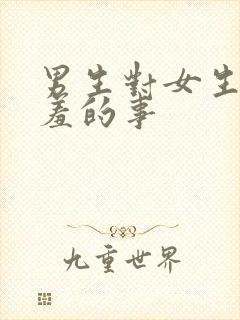 男生對女生
羞的事
九重世界